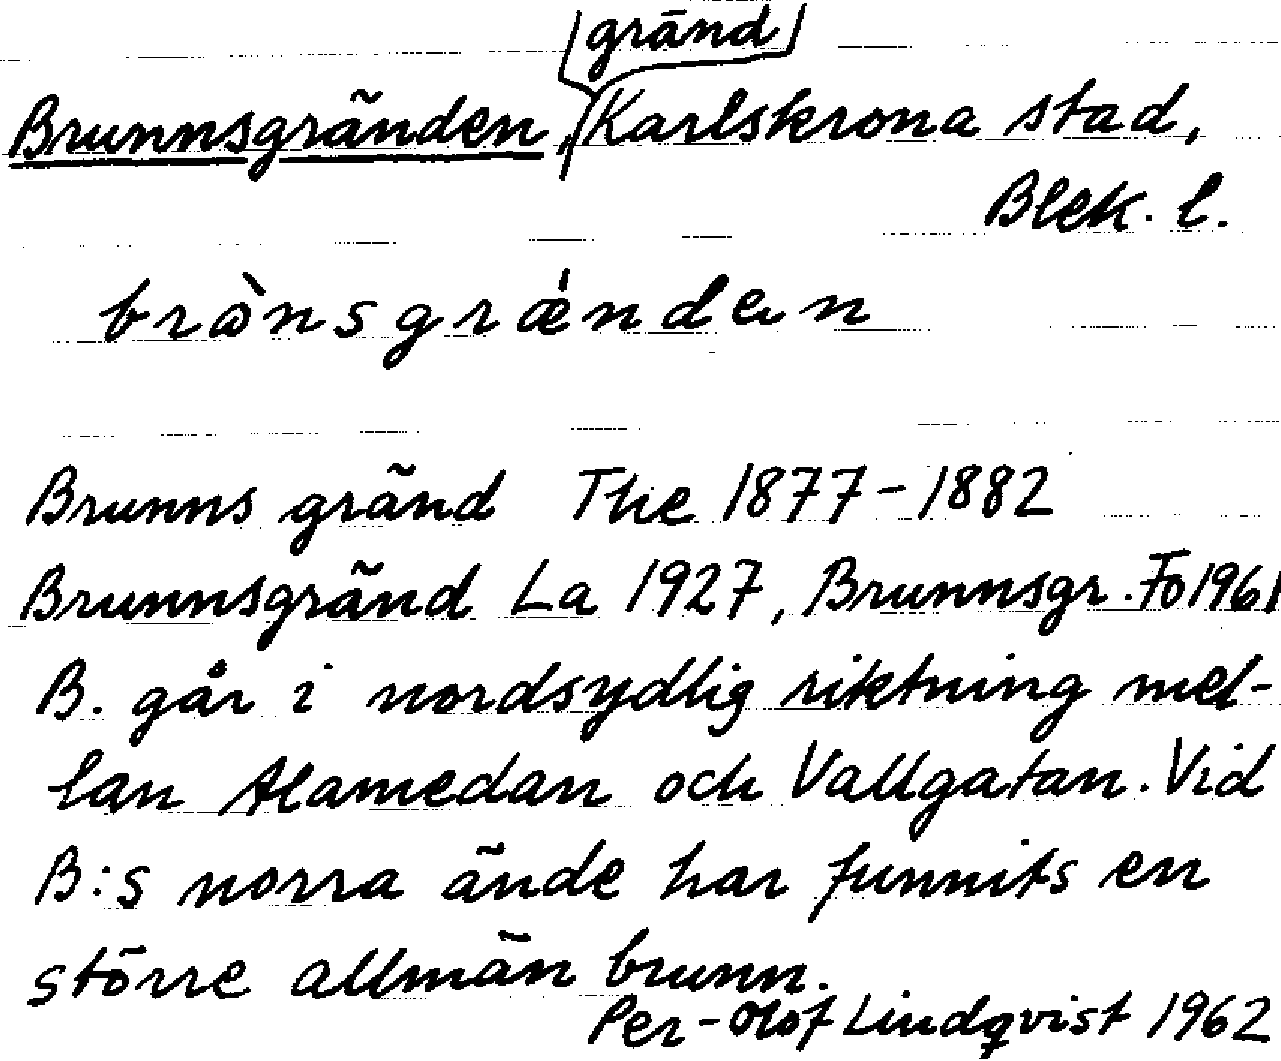 gränd
Brunnsgränden, Karlskrona stad,
Blek. l.
brònsgrænden
Brunns gränd The 1877-1882
Brunnsgränd La 1927, Brunnsgr. Fo 1961
B. går i nordsydlig riktning mel-
lan Alamedan och Vallgatan. Vid
B:s norra ände har funnits en
större allmän brunn.
Per-Olof Lindqvist 1962